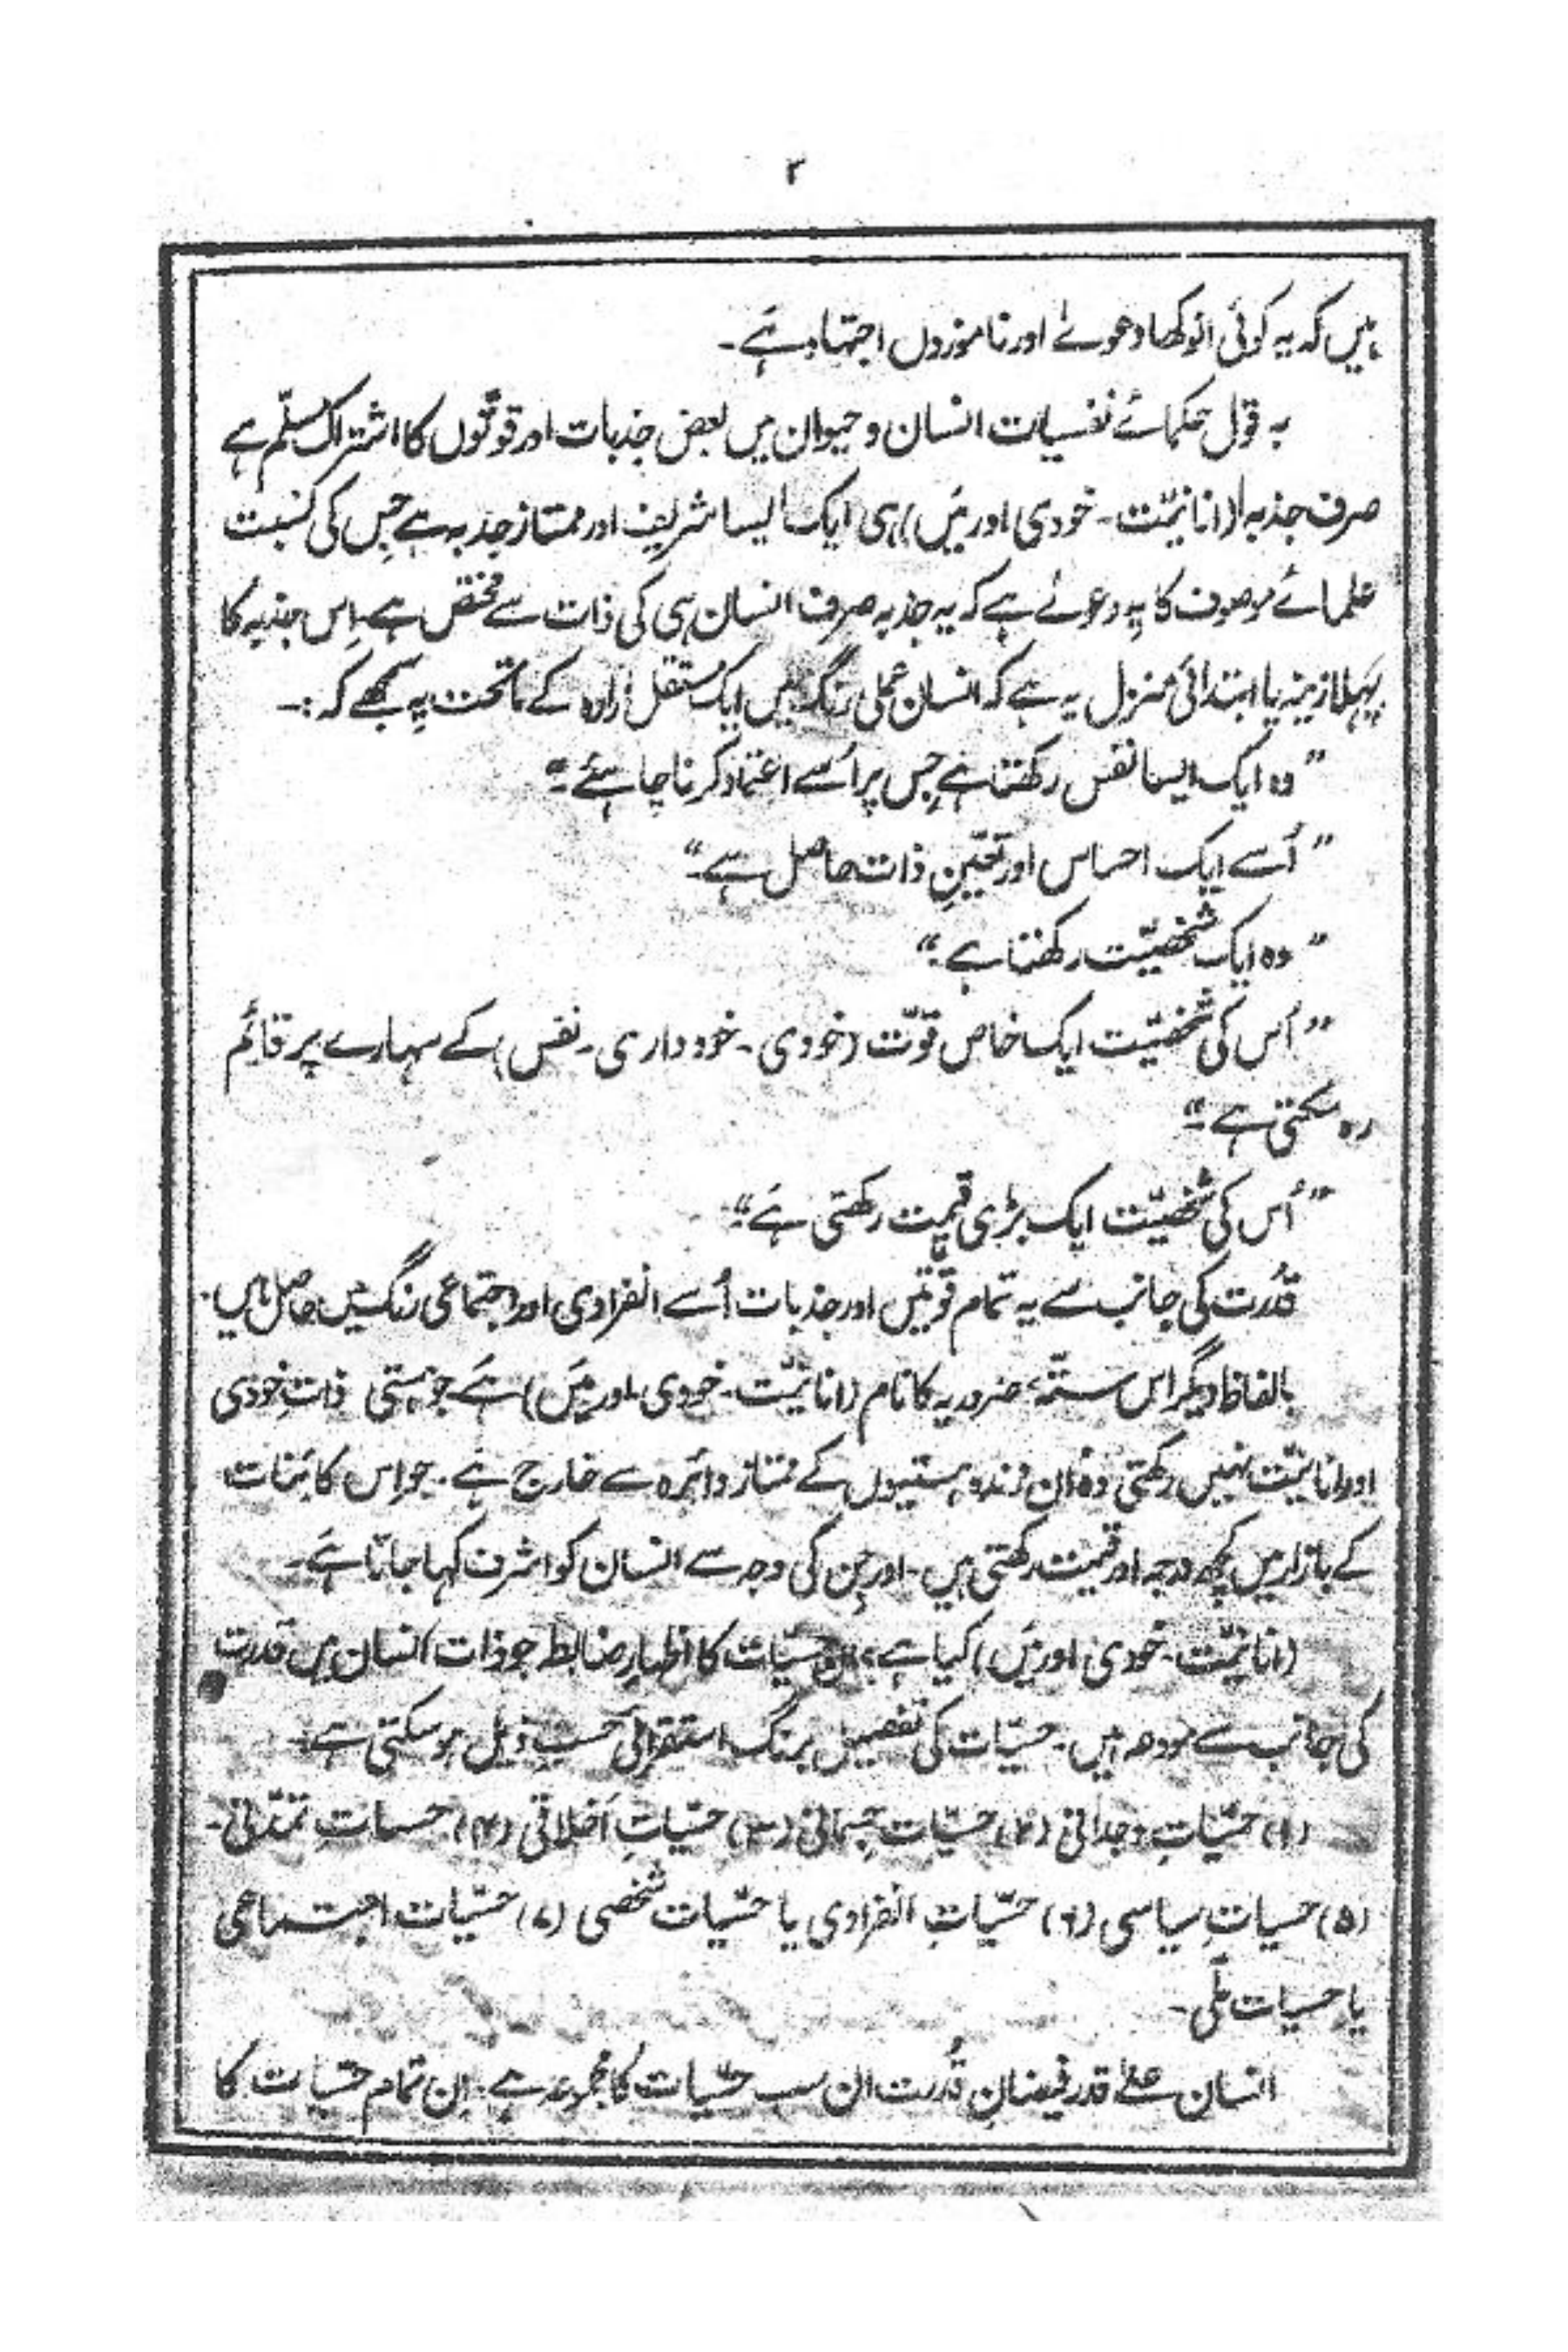 ۲
ہیں کہ یہ کوئی انوکھا دعوےٰ اور ناموزوں اجتہاد ہَے۔
بہ قول حکمائے نفسیات انسان و حیوان میں بعض جذبات اور قوتوں کا اشتراک مسلّم ہے
صرف جذبہ (انانیّت۔ خودی اور مَیں) ہی ایک ایسا شریف اور ممتاز جذبہ ہے جِس کی نسبت
علمائے موصوف کا یہ دعوےٰ ہے کہ یہ جذبہ صرف انسان ہی کی ذات سے مختص ہے۔ اِس جذبہ کا
پہلا زینہ یا ابتدائی منزل یہ ہے کہ انسان عملی رنگ میں ایک مستقل ارادہ کے ماتحت یہ سمجھے کہ :۔
” وہ ایک ایسا نفس رکھتا ہَے جِس پر اُسے اعتماد کرنا چاہئے۔“
” اُسے ایک احساس اور تعیّنِ ذات حاصل ہے۔“
” وہ ایک شخصیّت رکھتا ہے۔“
” اُس کی شخصیّت ایک خاص قوّت (خودی۔ خود داری۔ نفس) کے سہارے پر قائم
رہ سکتی ہے۔“
” اُس کی شخصیّت ایک بڑی قیمت رکھتی ہَے۔“
قُدرت کی جانب سے یہ تمام قوتیں اور جذبات اُسے انفرادی اور اجتماعی رنگ میں حاصل ہیں۔
بالفاظ دیگر اس ستہّٴ ضروریہ کا نام (انانیّت۔ خودی اور مَیں) ہَے۔ جو ہستی ذاتِ خودی
اور انانیّت نہیں رکھتی وہ اُن زندہ ہستیوں کے ممتاز دائرہ سے خارج ہَے۔ جو اِس کائنات
کے بازار میں کچھ درجہ اور قیمت رکھتی ہیں۔ اور جِن کی وجہ سے انسان کو اشرف کہا جاتا ہَے۔
(انانیّت۔ خودی اور مَیں) کیا ہے؟ اِن حِسیّات کا اظہارِ ضابطہ جو ذات انسان میں قدرت
کی جانب سے مودعہ ہیں۔ حسیّات کی تفصیل برنگ استقرائی حسبِ ذیل ہو سکتی ہے:۔
(۱) حسیّاتِ وجدانی (۲) حسیّات جسمانی (۳) حسیّاتِ اَخلاقی (۴) حسیاتِ تمدّنی۔
(۵) حسیاتِ سیاسی (۶) حسیّاتِ انفرادی یا حسیّات شخصی (۷) حسیّات اجتماعی
یا حسیات ملّی۔
انسان علےٰ قدر فیضانِ قُدرت ان سب حسیّات کا مجموعہ ہے۔ اِن تمام حسیّات کا